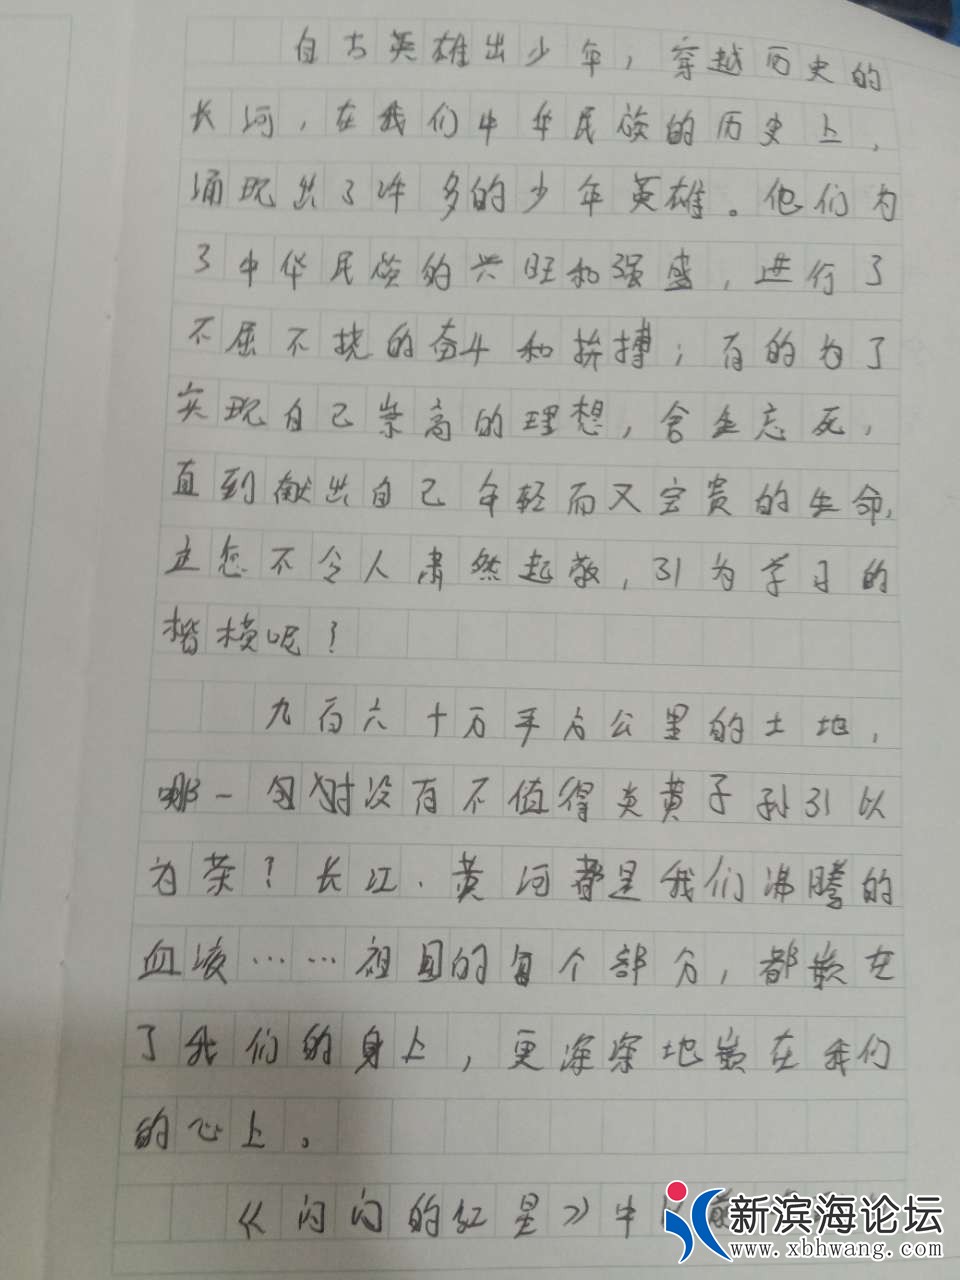 自古英雄出少年，穿越历史的
长河，在我们中华民族的历史上，
涌现出了许多的少年英雄。他们为
了中华民族的兴旺和强盛，进行了
不屈不挠的奋斗和拚搏；有的为了
实现自己崇高的理想，舍生忘死，
直到献出自己年轻而又宝贵的生命，
这怎不令人肃然起敬，引为学习的
楷模呢？
九百六十万平方公里的土地，
哪一处没有不值得炎黄子孙引以
为荣？长江、黄河都是我们沸腾的
血液……祖国的每个部分，都嵌在
了我们的身上，更深深地嵌在我们
的心上。
《闪闪的红星》中
新滨海论坛
www.xbhwang.com